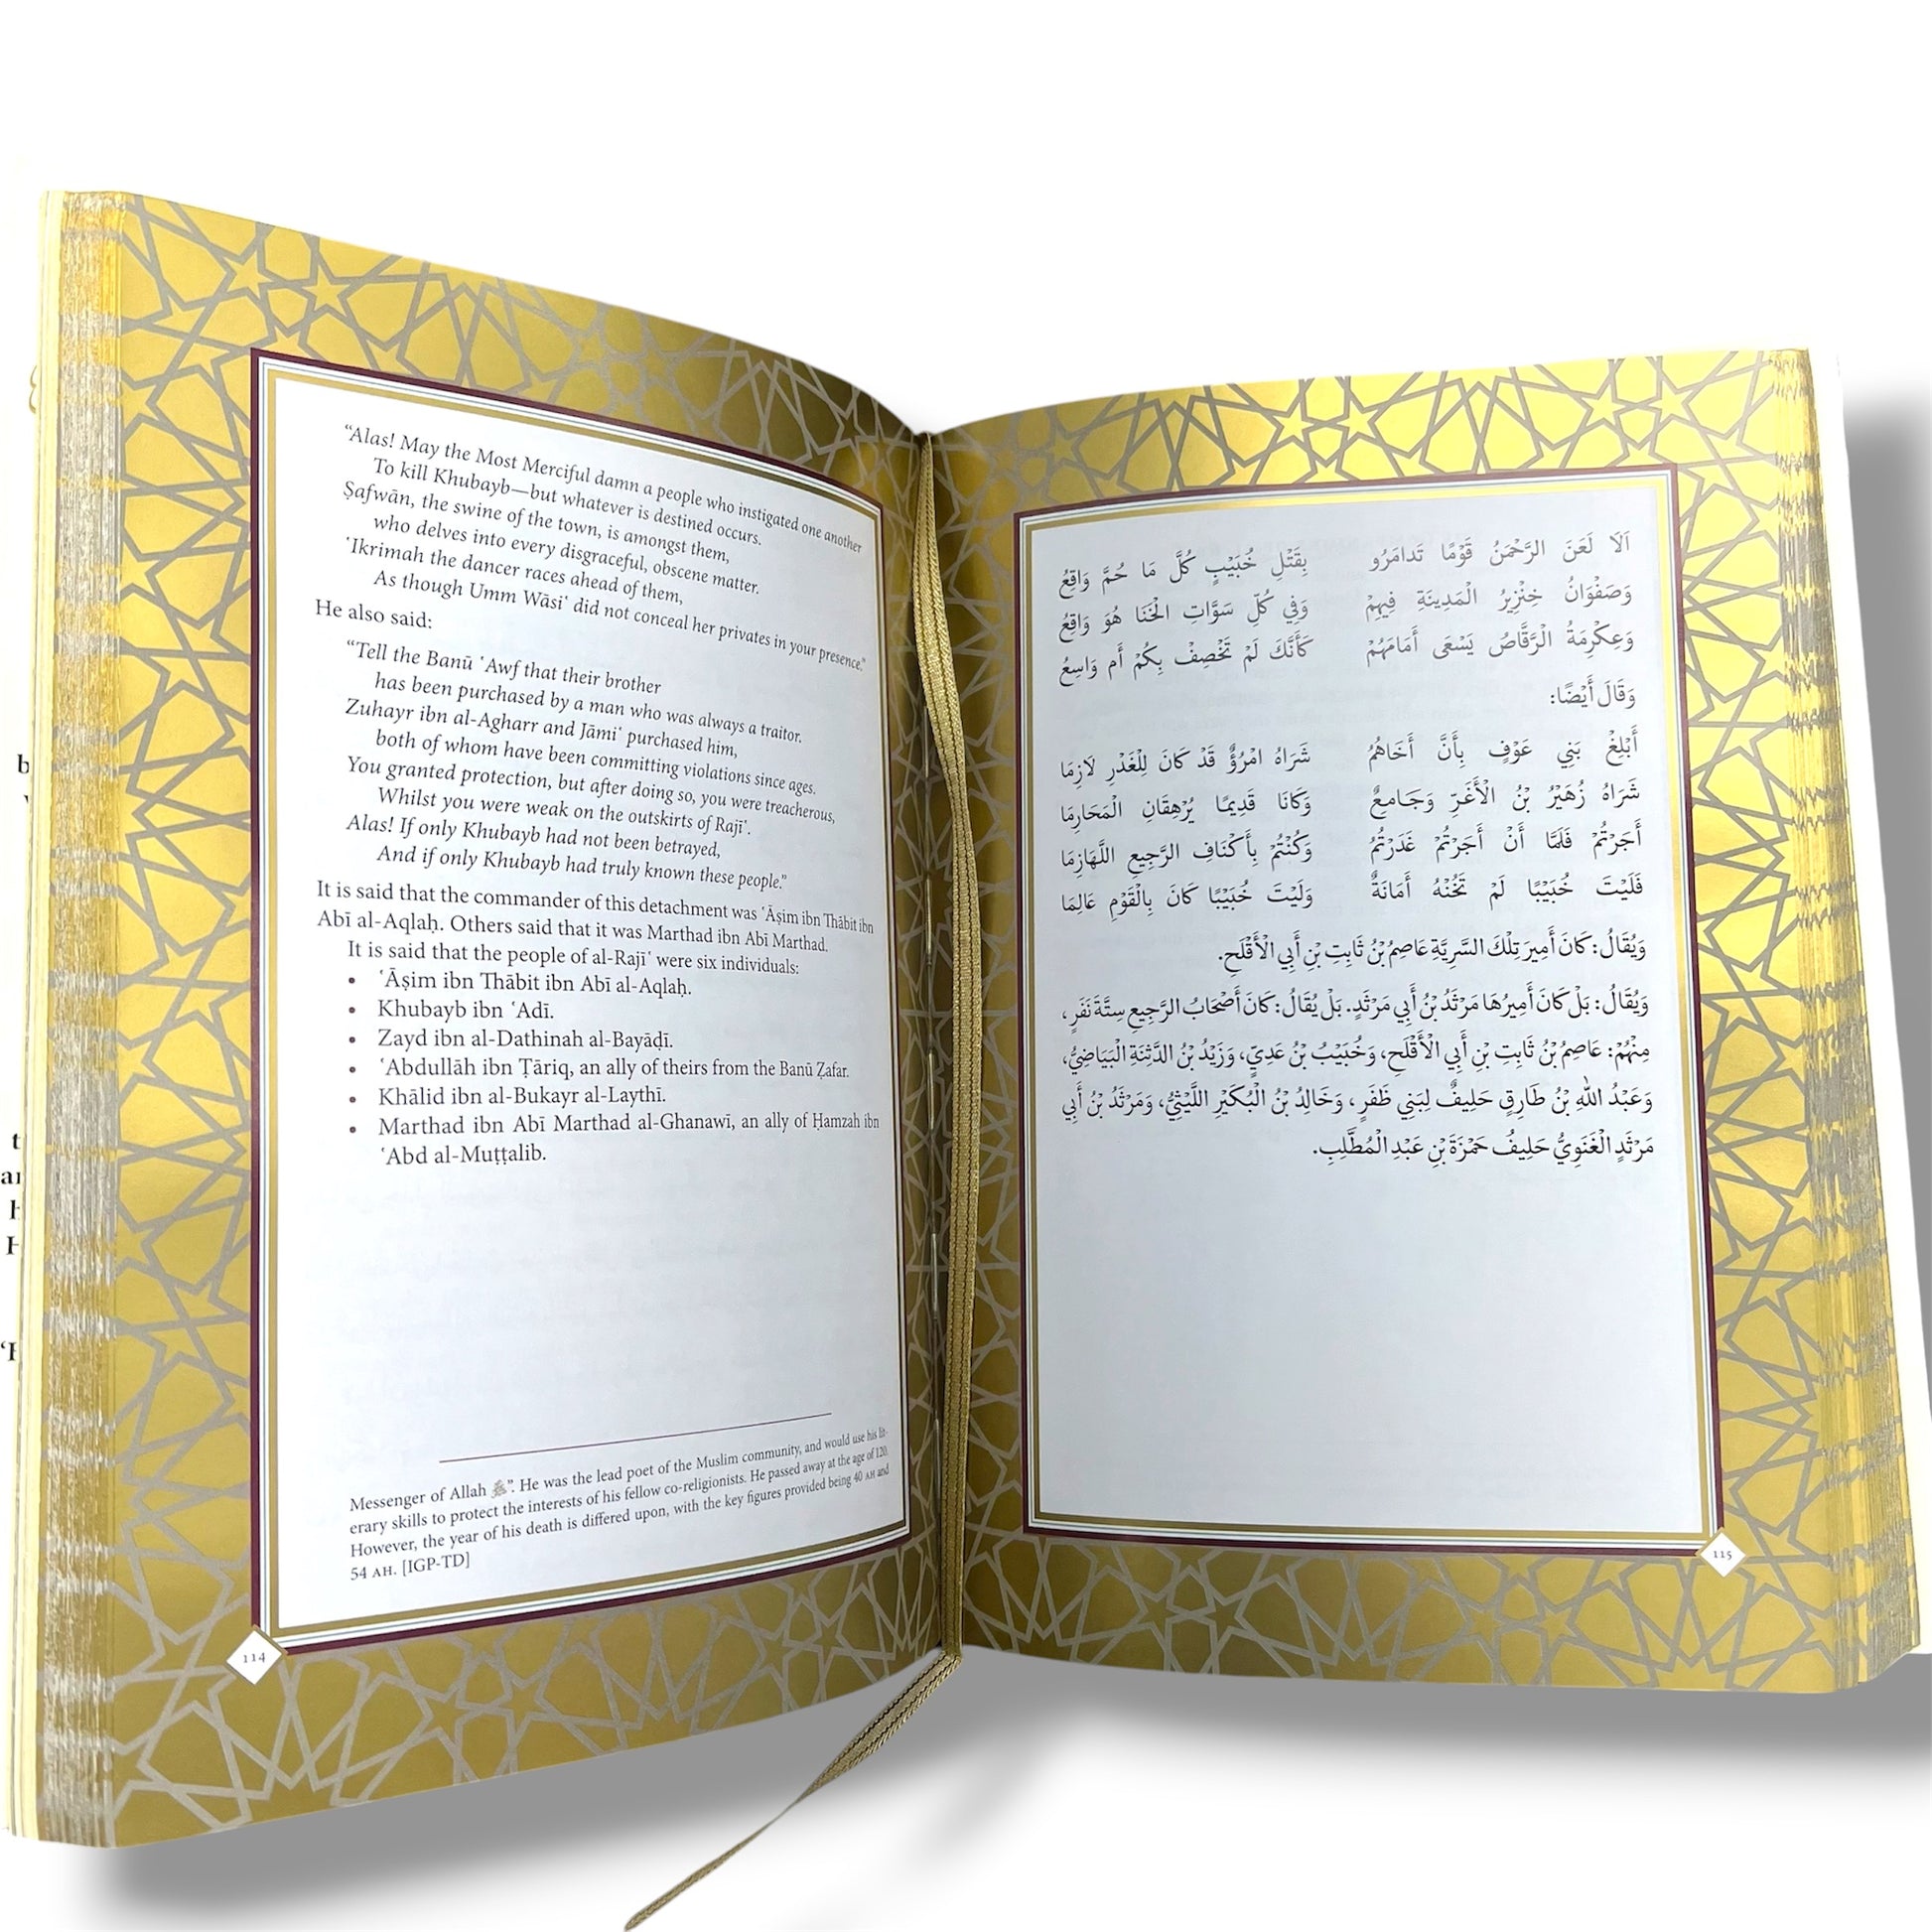 “Alas! May the Most Merciful damn a people who instigated one another
To kill Khubayb—but whatever is destined occurs.
Ṣafwān, the swine of the town, is amongst them,
who delves into every disgraceful, obscene matter.
ʿIkrimah the dancer races ahead of them,
As though Umm Wāsiʿ did not conceal her privates in your presence.”
He also said:
“Tell the Banū ʿAwf that their brother
has been purchased by a man who was always a traitor.
Zuhayr ibn al-Agharr and Jāmiʿ purchased him,
both of whom have been committing violations since ages.
You granted protection, but after doing so, you were treacherous,
Whilst you were weak on the outskirts of Rajīʿ.
Alas! If only Khubayb had not been betrayed,
And if only Khubayb had truly known these people.”
It is said that the commander of this detachment was ʿĀṣim ibn Thābit ibn
Abī al-Aqlaḥ. Others said that it was Marthad ibn Abī Marthad.
It is said that the people of al-Rajīʿ were six individuals:
• ʿĀṣim ibn Thābit ibn Abī al-Aqlaḥ.
• Khubayb ibn ʿAdī.
• Zayd ibn al-Dathinah al-Bayāḍī.
• ʿAbdullāh ibn Ṭāriq, an ally of theirs from the Banū Ẓafar.
• Khālid ibn al-Bukayr al-Laythī.
• Marthad ibn Abī Marthad al-Ghanawī, an ally of Ḥamzah ibn
ʿAbd al-Muṭṭalib.
Messenger of Allah ﷺ”. He was the lead poet of the Muslim community, and would use his lit-
erary skills to protect the interests of his fellow co-religionists. He passed away at the age of 120.
However, the year of his death is differed upon, with the key figures provided being 40 AH and
54 AH. [IGP-TD]
114
اَلَا لَعَنَ الرَّحْمَنُ قَوْمًا تَدامَرُو بِقَتْلِ خُبَيْبٍ كُلَّ مَا حُمَّ وَاقِعُ
وَصَفْوَانُ خِنْزِيرُ الْمَدِينَةِ فِيهِمْ وَفِي كُلِّ سَوَّاتِ الْخَنَا هُوَ وَاقِعُ
وَعِكْرِمَةُ الْرَّقَّاصُ يَسْعَى أَمَامَهُمْ كَأَنَّكَ لَمْ تَخْصِفْ بِكُمْ أَم وَاسِعُ
وَقَالَ أَيْضًا:
أَبْلِغْ بَنِي عَوْفٍ بِأَنَّ أَخَاهُمُ شَرَاهُ امْرُؤٌ قَدْ كَانَ لِلْغَدْرِ لَازِمَا
شَرَاهُ زُهَيْرُ بْنُ الْأَغَرِّ وَجَامِعٌ وَكَانَا قَدِيمًا يُرْهِقَانِ الْمَحَارِمَا
أَجَرْتُمْ فَلَمَّا أَنْ أَجَرْتُمْ غَدَرْتُمُ وَكُنْتُمْ بِأَكْنَافِ الرَّجِيعِ اللَّهَازِمَا
فَلَيْتَ خُبَيْبًا لَمْ تَخُنْهُ أَمَانَةٌ وَلَيْتَ خُبَيْبًا كَانَ بِالْقَوْمِ عَالِمَا
وَيُقَالُ: كَانَ أَمِيرَ تِلْكَ السَّرِيَّةِ عَاصِمُ بْنُ ثَابِتِ بْنِ أَبِي الْأَقْلَحِ.
وَيُقَالُ: بَلْ كَانَ أَمِيرُهَا مَرْثَدُ بْنُ أَبِي مَرْثَدٍ. بَلْ يُقَالُ: كَانَ أَصْحَابُ الرَّجِيعِ سِتَّةَ نَفَرٍ،
مِنْهُمْ: عَاصِمُ بْنُ ثَابِتِ بْنِ أَبِي الْأَقْلَحِ، وَخُبَيْبُ بْنُ عَدِيٍّ، وَزَيْدُ بْنُ الدَّثِنَةِ الْبَيَاضِيُّ،
وَعَبْدُ اللهِ بْنُ طَارِقٍ حَلِيفٌ لِبَنِي ظَفَرٍ، وَخَالِدُ بْنُ الْبُكَيْرِ اللَّيْثِيُّ، وَمَرْثَدُ بْنُ أَبِي
مَرْثَدٍ الْغَنَوِيُّ حَلِيفُ حَمْزَةَ بْنِ عَبْدِ الْمُطَّلِبِ.
115